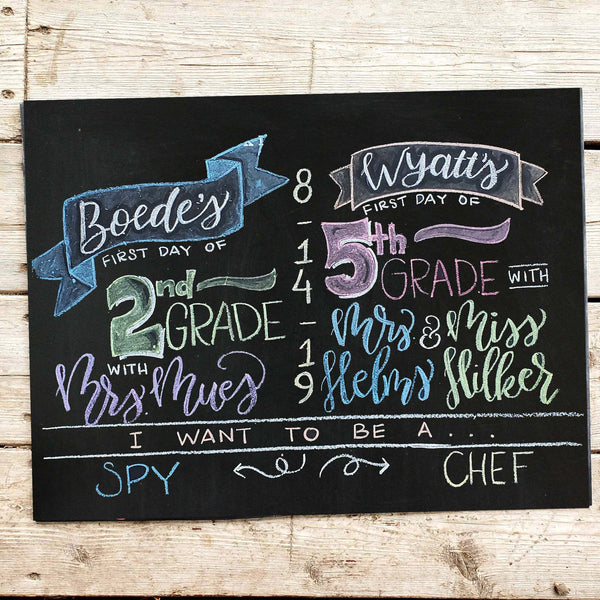 Boede's
FIRST DAY OF
2nd GRADE
WITH
Mrs. Mues
8-14-19
Wyatt's
FIRST DAY OF
5th GRADE WITH
Mrs & Miss
Helms Hilker
I WANT TO BE A...
SPY
CHEF